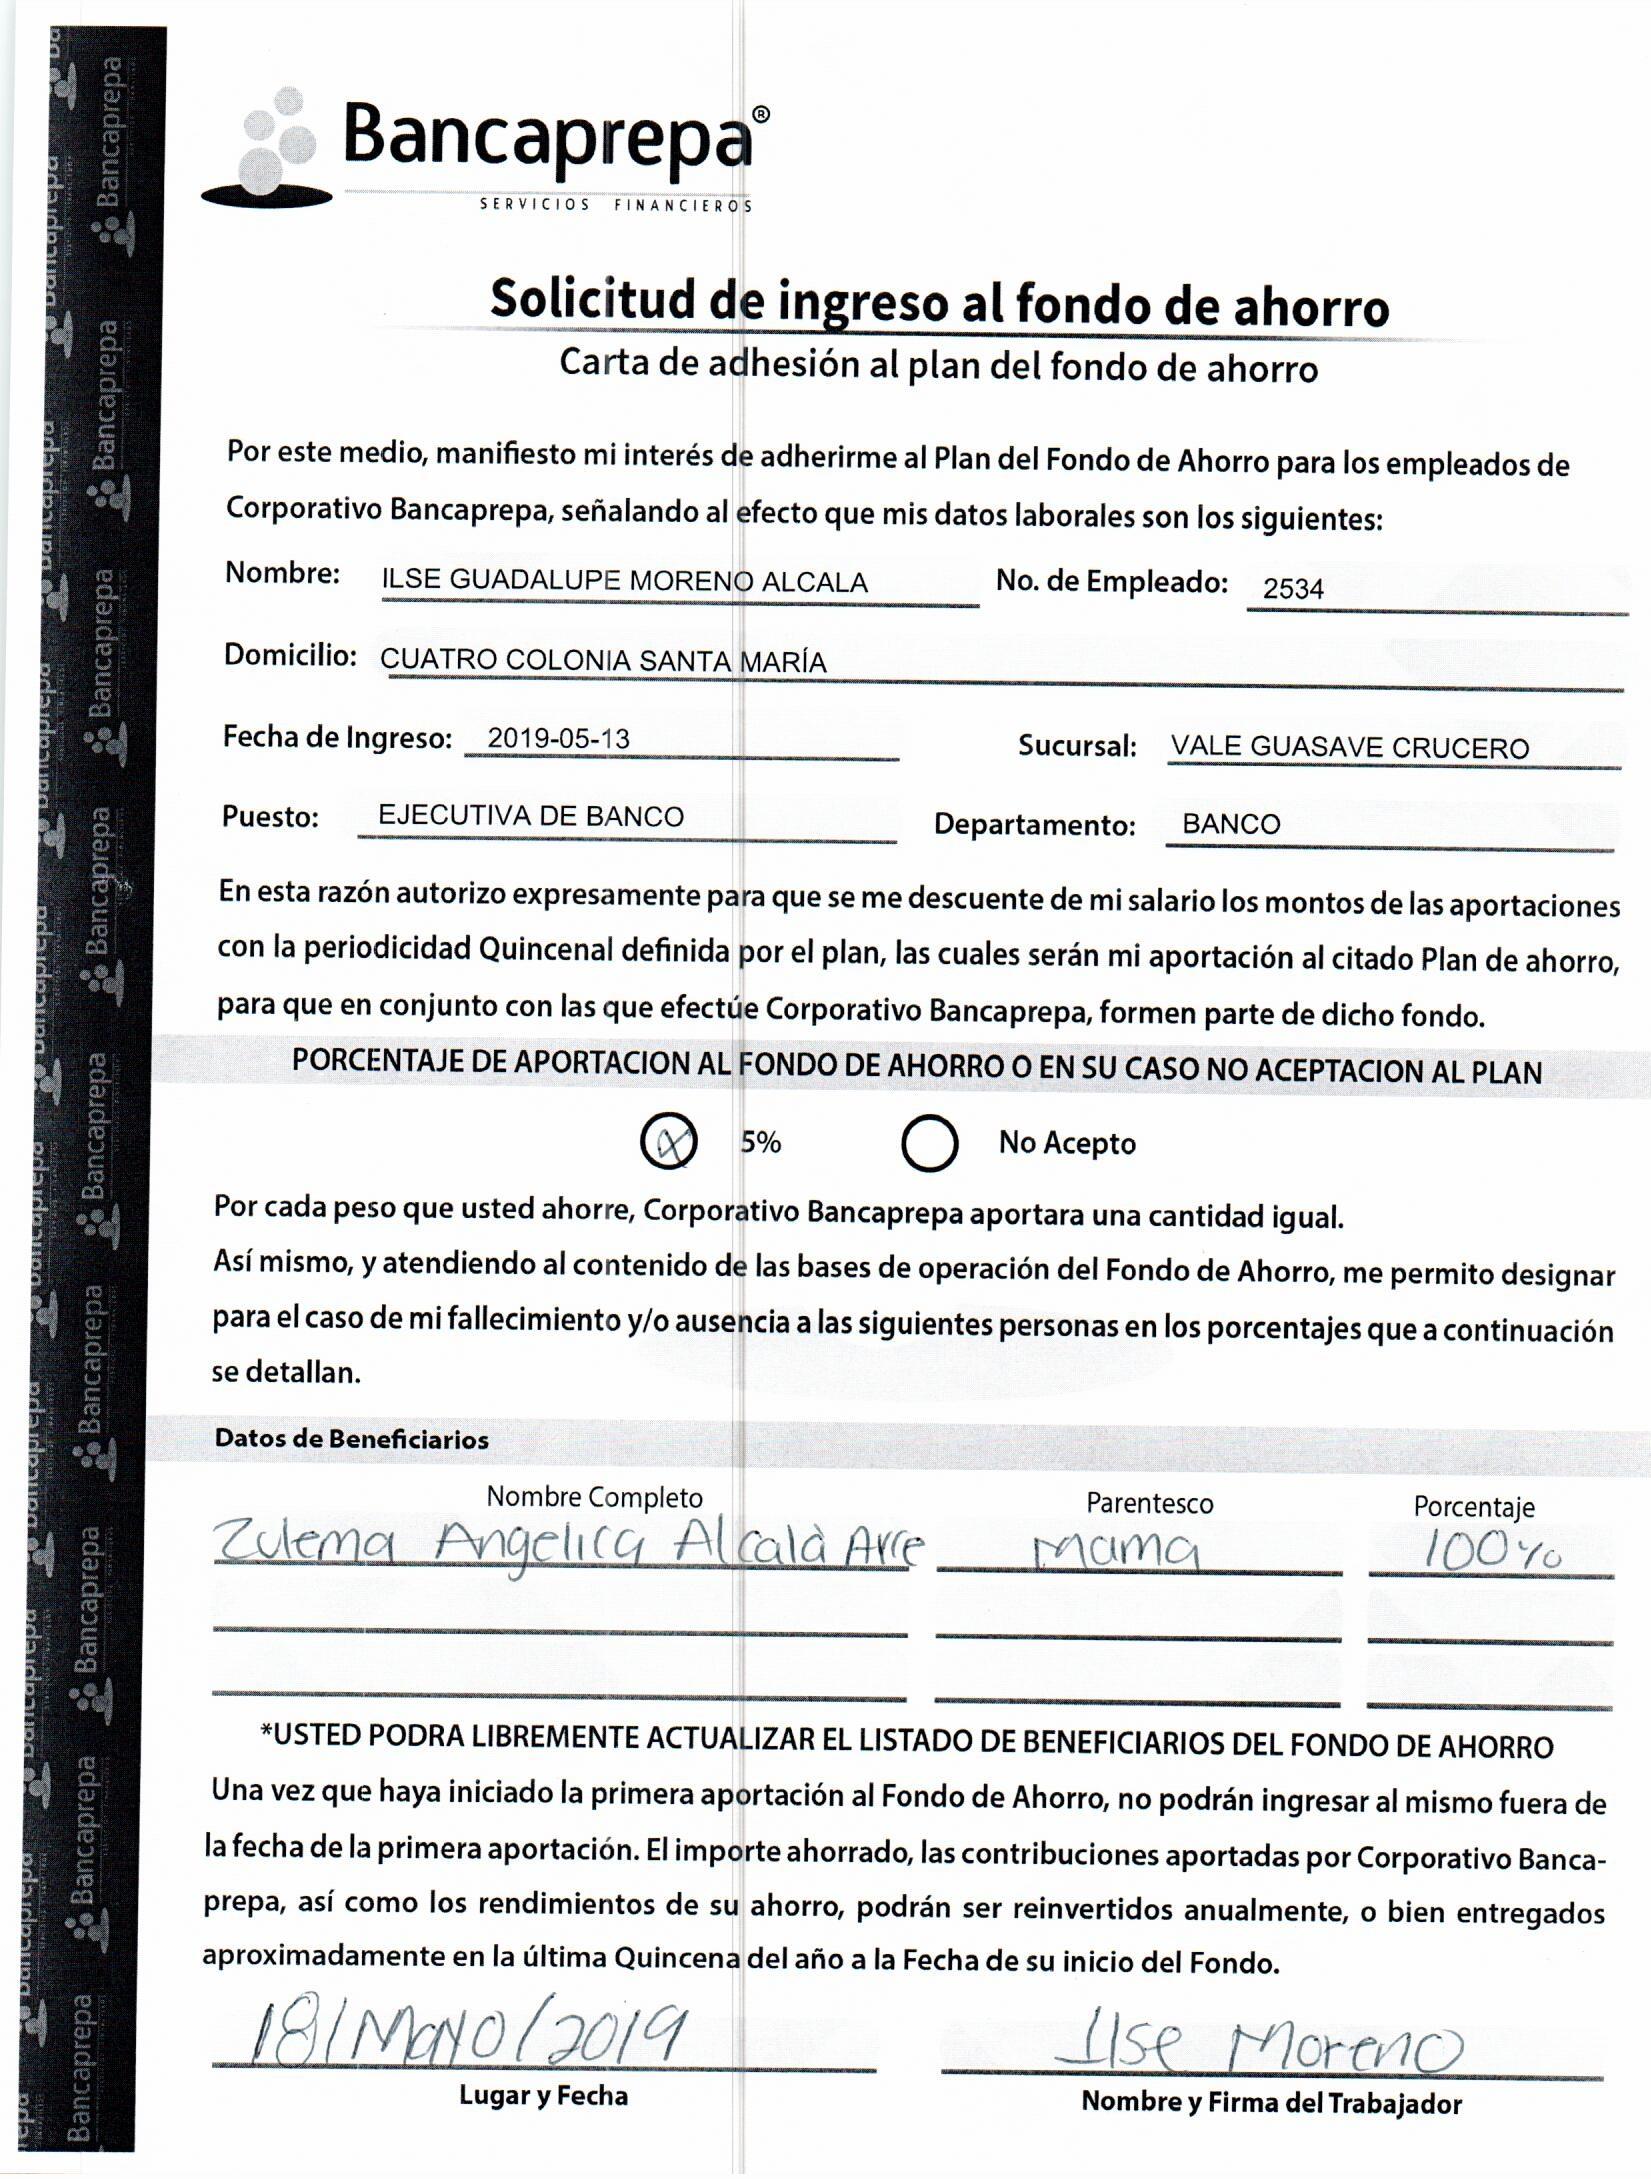 Bancaprepa®
SERVICIOS FINANCIEROS
Solicitud de ingreso al fondo de ahorro
Carta de adhesión al plan del fondo de ahorro
Por este medio, manifiesto mi interés de adherirme al Plan del Fondo de Ahorro para los empleados de
Corporativo Bancaprepa, señalando al efecto que mis datos laborales son los siguientes:
Nombre: ILSE GUADALUPE MORENO ALCALA No. de Empleado: 2534
Domicilio: CUATRO COLONIA SANTA MARÍA
Fecha de Ingreso: 2019-05-13 Sucursal: VALE GUASAVE CRUCERO
Puesto: EJECUTIVA DE BANCO Departamento: BANCO
En esta razón autorizo expresamente para que se me descuente de mi salario los montos de las aportaciones
con la periodicidad Quincenal definida por el plan, las cuales serán mi aportación al citado Plan de ahorro,
para que en conjunto con las que efectúe Corporativo Bancaprepa, formen parte de dicho fondo.
PORCENTAJE DE APORTACION AL FONDO DE AHORRO O EN SU CASO NO ACEPTACION AL PLAN
X 5% No Acepto
Por cada peso que usted ahorre, Corporativo Bancaprepa aportara una cantidad igual.
Así mismo, y atendiendo al contenido de las bases de operación del Fondo de Ahorro, me permito designar
para el caso de mi fallecimiento y/o ausencia a las siguientes personas en los porcentajes que a continuación
se detallan.
Datos de Beneficiarios
Nombre Completo Parentesco Porcentaje
Zulema Angelica Alcalà Arre Mama 100%
*USTED PODRA LIBREMENTE ACTUALIZAR EL LISTADO DE BENEFICIARIOS DEL FONDO DE AHORRO
Una vez que haya iniciado la primera aportación al Fondo de Ahorro, no podrán ingresar al mismo fuera de
la fecha de la primera aportación. El importe ahorrado, las contribuciones aportadas por Corporativo Banca-
prepa, así como los rendimientos de su ahorro, podrán ser reinvertidos anualmente, o bien entregados
aproximadamente en la última Quincena del año a la Fecha de su inicio del Fondo.
18/Mayo/2019 Ilse Moreno
Lugar y Fecha Nombre y Firma del Trabajador